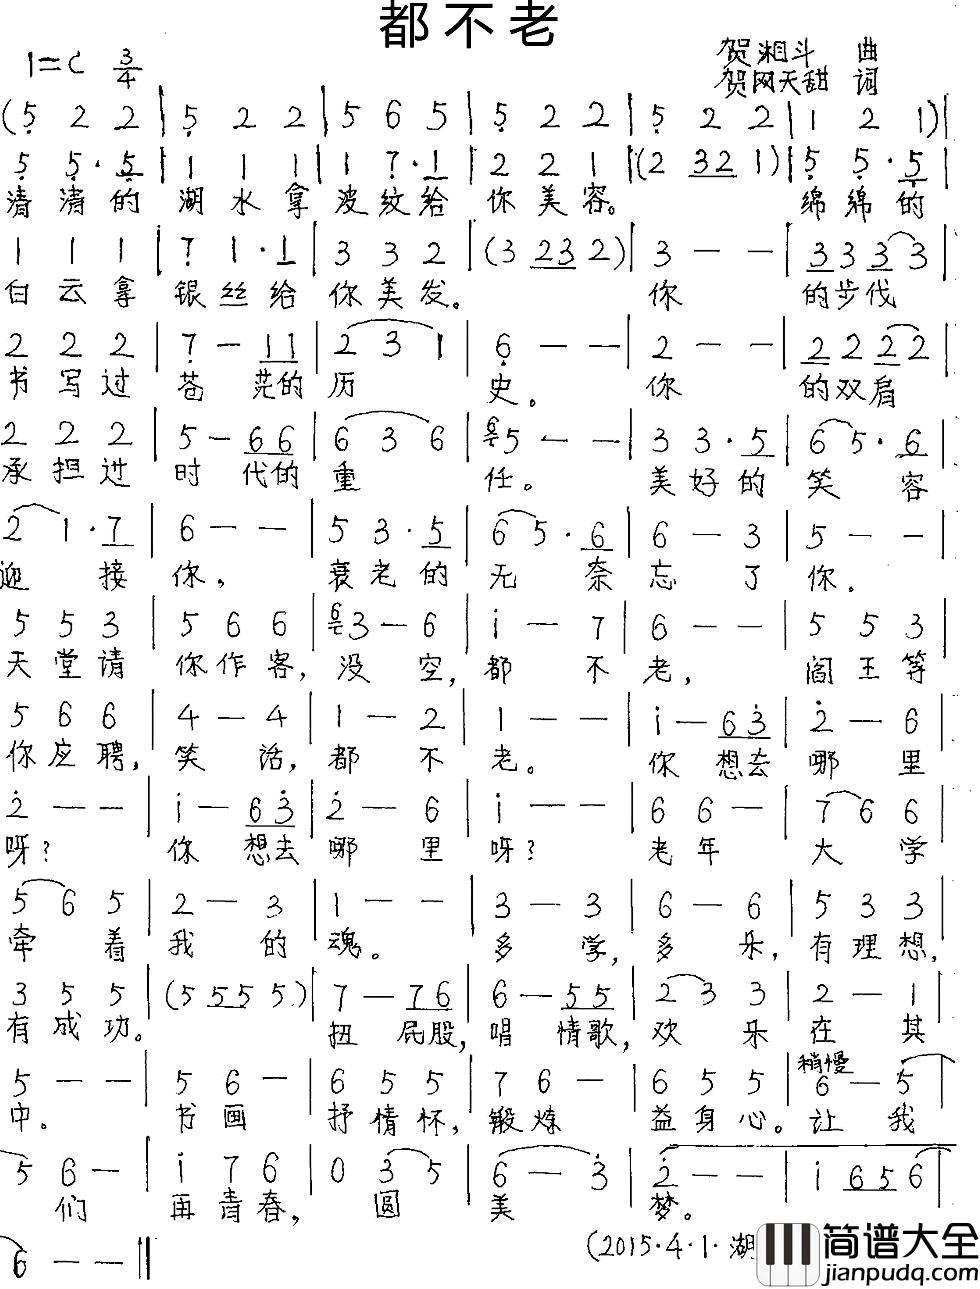 都不老
1=C 3/4
贺湘斗 曲
贺网天甜 词
(5 2 2 | 5 2 2 | 5 6 5 | 5 2 2 | 5 2 2 | 1 2 1) |
5 5· 5 | 1 1 1 | 1 7· 1 | 2 2 1 | (2 32 1) | 5 5· 5 |
清清的 湖水拿 波纹给 你美容。 绵绵的
1 1 1 | 7 1· 1 | 3 3 2 | (3 23 2) | 3 — — | 3 3 3 3 |
白云拿 银丝给 你美发。 你 的步伐
2 2 2 | 7 — 11 | 2 3 1 | 6 — — | 2 — — | 2 2 2 2 |
书写过 苍茫的 历 史。 你 的双肩
2 2 2 | 5 — 66 | 6 3 6 | 6 5 — — | 3 3· 5 | 6 5· 6 |
承担过 时代的 重 任。 美好的 笑容
2 1· 7 | 6 — — | 5 3· 5 | 6 5· 6 | 6 — 3 | 5 — — |
迎接 你, 衰老的 无奈 忘了 你.
5 5 3 | 5 6 6 | 6 3 — 6 | i — 7 | 6 — — | 5 5 3 |
天堂请 你作客, 没空, 都不 老, 阎王等
5 6 6 | 4 — 4 | 1 — 2 | 1 — — | i — 63 | 2 — 6 |
你应聘, 笑话, 都不 老。 你想去 哪里
2 — — | i — 63 | 2 — 6 | i — — | 6 6 — | 7 6 6 |
呀? 你想去 哪里 呀? 老年 大学
5 6 5 | 2 — 3 | 1 — — | 3 — 3 | 6 — 6 | 5 3 3 |
牵着 我的 魂。 多学, 多乐, 有理想,
3 5 5 | (5 55 5) | 7 — 76 | 6 — 55 | 2 3 3 | 2 — 1 |
有成功。 扭屁股, 唱情歌, 欢乐 在其
稍慢
5 — — | 5 6 — | 6 5 5 | 7 6 — | 6 5 5 | 6 — 5 |
中。 书画 抒情怀, 锻炼 益身心。 让我
5 6 — | i 7 6 | 0 3 5 | 6 — 3 | 2 — — | i 65 6 |
们 再青春, 圆 美 梦。
6 — — ‖
(2015·4·1·湖
简谱大全
jianpudq.com